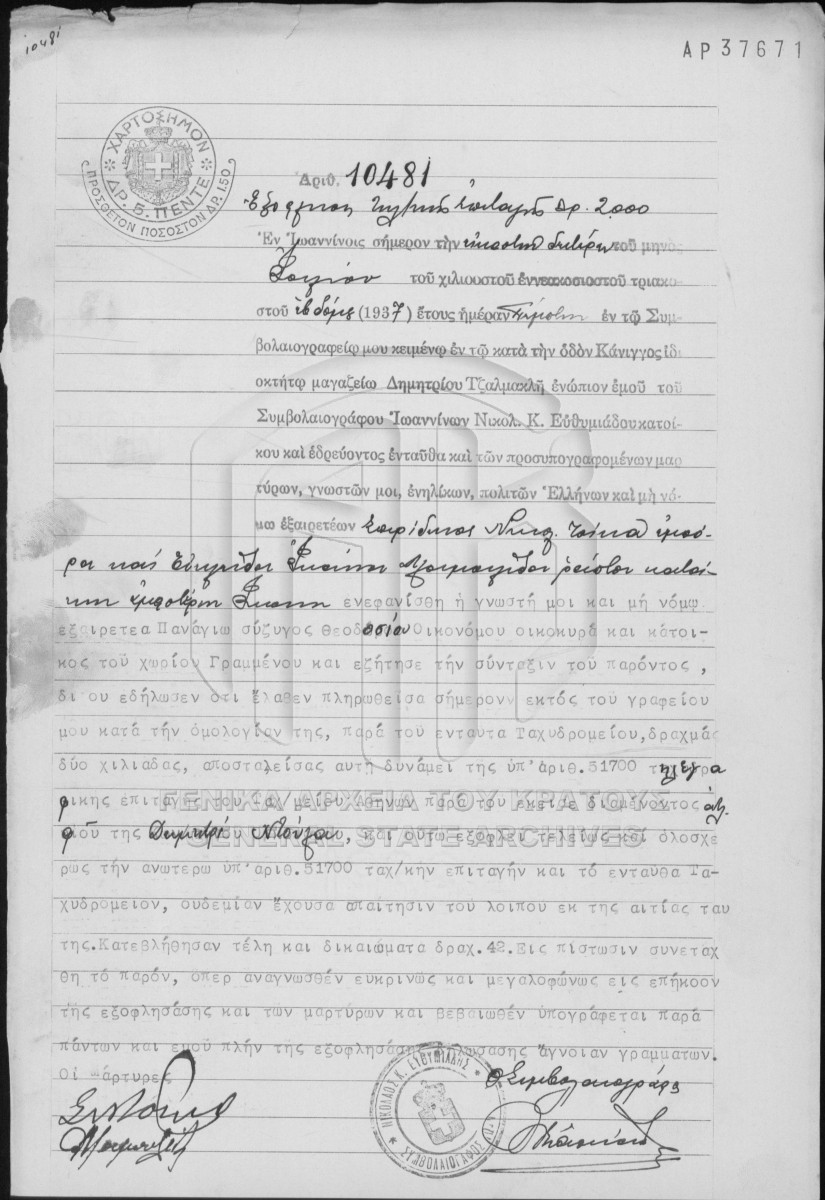 10481
ΑΡ37671
ΧΑΡΤΟΣΗΜΟΝ
ΔΡ. 5. ΠΕΝΤΕ
ΠΡΟΣΘΕΤΟΝ ΠΟΣΟΣΤΟΝ ΔΡ. 1.50
Ἀριθ. 10481
Ἐξόφλησις ἐπιταγῆς Δρ. 2.000
Ἐν Ἰωαννίνοις σήμερον τὴν εἰκοστὴν τοῦ μηνὸς
Ἰουλίου τοῦ χιλιοστοῦ ἐννεακοσιοστοῦ τριακο-
στοῦ ἑβδόμου (1937) ἔτους ἡμέραν Πέμπτην ἐν τῷ Συμ-
βολαιογραφείῳ μου κειμένῳ ἐν τῷ κατὰ τὴν ὁδὸν Κάνιγγος ἰδι-
οκτήτῳ μαγαζείῳ Δημητρίου Τζαλμακλῆ ἐνώπιον ἐμοῦ τοῦ
Συμβολαιογράφου Ἰωαννίνων Νικολ. Κ. Εὐθυμιάδου κατοί-
κου καὶ ἑδρεύοντος ἐνταῦθα καὶ τῶν προσυπογραφομένων μαρ
τύρων, γνωστῶν μοι, ἐνηλίκων, πολιτῶν Ἑλλήνων καὶ μὴ νό-
μῳ ἐξαιρετέων Σπυρίδωνος Νικ. Τσίκα ἐμπό-
ρου καὶ
ενεφανίσθη ἡ γνωστή μοι και μή νόμῳ
εξαιρετεα Πανάγιω σύζυγος Θεοδοσίου Οικονόμου οικοκυρά και κάτοι-
κος τοῦ χωρίου Γραμμένου και εζήτησε τήν σύνταξιν τοῦ παρόντος,
δι ου εδήλωσεν οτι ἔλαβεν πληρωθεῖσα σήμερονν εκτός τοῦ γραφείου
μου κατά τήν ὁμολογίαν της, παρά τοῦ ενταυτα Ταχυδρομείου, δραχμάς
δύο χιλιάδας, αποσταλείσας αυτῇ δυνάμει τῆς ὑπ'ἀριθ.51700 τηλεγρα
φικης ἐπιταγῆς τοῦ Ταμείου Αθηνων παρά τοῦ εκεῖσε διαμένοντος ἀδ.
φοῦ της Δημητρίου Ντούζα, και ουτω εξοφλεῖ τελείως και ὁλοσχε
ρῶς τήν ανωτερω ὑπ'ἀριθ.51700 ταχ/κην επιταγήν και τό ενταυθα Τα-
χυδρομειον, ουδεμίαν ἔχουσα απαίτησιν τοῦ λοιπου εκ της αιτίας ταυ
της.Κατεβλήθησαν τέλη και δικαιώματα δραχ.42.Εις πίστωσιν συνεταχ
θη τό παρόν, ὅπερ αναγνωσθέν ευκρινῶς και μεγαλοφώνως εις επήκοον
τῆς εξοφλησάσης και τῶν μαρτύρων και βεβαιωθέν ὑπογράφεται παρά
πάντων και εμοῦ πλήν τῆς εξοφλησάσης δηλωσάσης ἄγνοιαν γραμματων.
Οἱ μάρτυρες
Ὁ Συμβολαιογράφος
ΝΙΚΟΛΑΟΣ Κ. ΕΥΘΥΜΙΑΔΗΣ
ΣΥΜΒΟΛΑΙΟΓΡΑΦΟΣ
ΓΕΝΙΚΑ ΑΡΧΕΙΑ ΤΟΥ ΚΡΑΤΟΥΣ
GENERAL STATE ARCHIVES